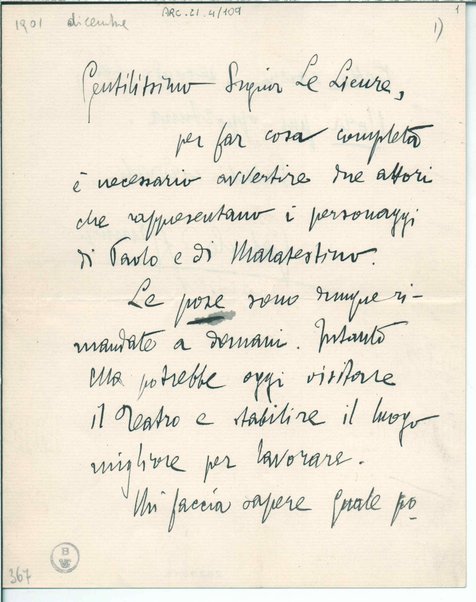 1901 dicembre
ARC.21.4/109
1
1)
Gentilissimo Signor Le Lieure,
per far cosa completa
è necessario avvertire due attori
che rappresentano i personaggi
di Paolo e di Malatestino.
Le pose sono dunque ri-
mandate a domani. Intanto
Ella potrebbe oggi visitare
il Teatro e stabilire il luogo
migliore per lavorare.
Mi faccia sapere quale po-
B
367